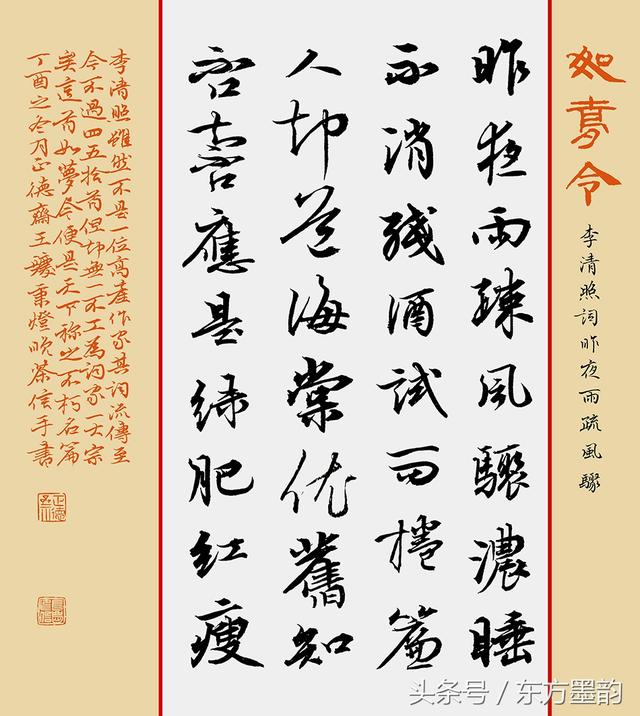 如夢令
李清照詞昨夜雨疏風驟
昨夜雨疎風驟濃睡
不消殘酒試問捲簾
人却道海棠依舊知
否知否應是綠肥紅瘦
李清照雖然不是一位高產作家其詞流傳至
今不過四五拾首但却無一不工為詞家一大宗
矣這首如夢令便是天下稱之不朽名篇
丁酉之冬月正德齋王驥秉燈茶信手書
头条号 / 东方墨韵